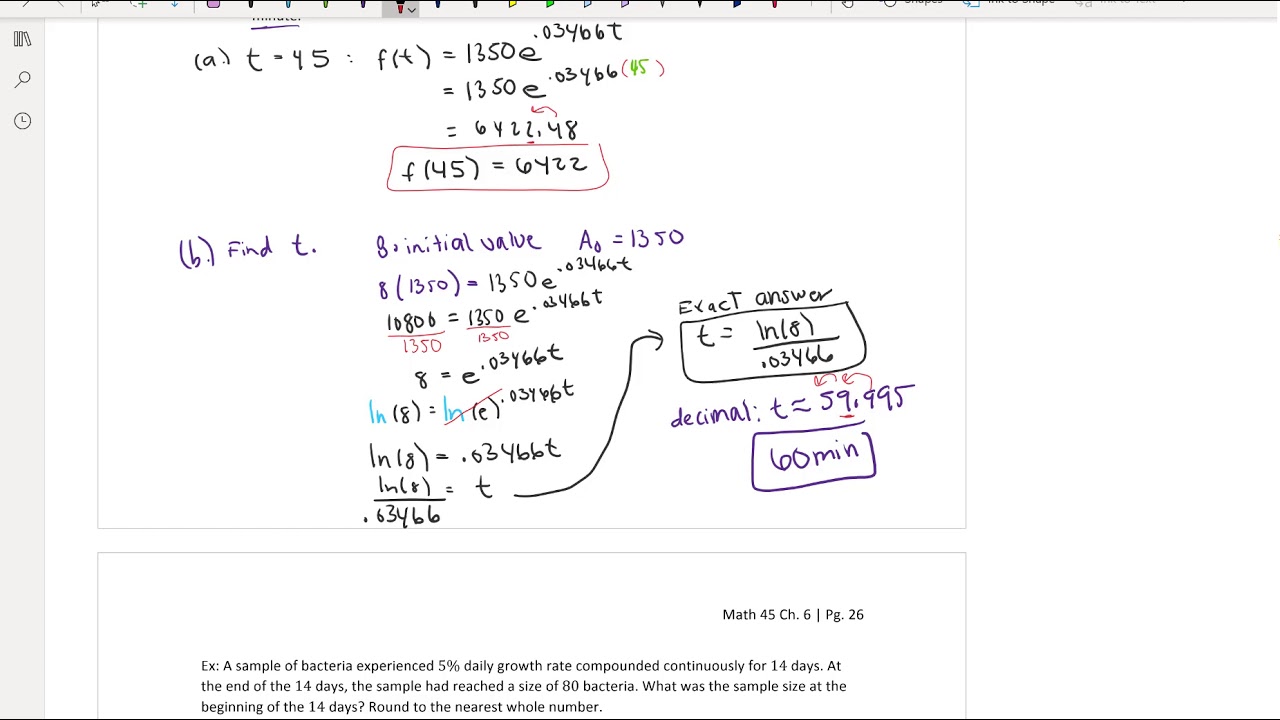 minute.
(a.) t = 45 : f(t) = 1350e^.03466t
= 1350 e^.03466(45)
= 6422.48
f(45) = 6422
(b.) Find t. 8 · initial value A₀ = 1350
8(1350) = 1350e^.03466t
10800/1350 = 1350/1350 e^.03466t
8 = e^.03466t
ln(8) = ln(e)^.03466t
ln(8) = .03466t
ln(8)/.03466 = t
Exact answer
t = ln(8)/.03466
decimal: t ≈ 59.995
60min
Math 45 Ch. 6 | Pg. 26
Ex: A sample of bacteria experienced 5% daily growth rate compounded continuously for 14 days. At
the end of the 14 days, the sample had reached a size of 80 bacteria. What was the sample size at the
beginning of the 14 days? Round to the nearest whole number.